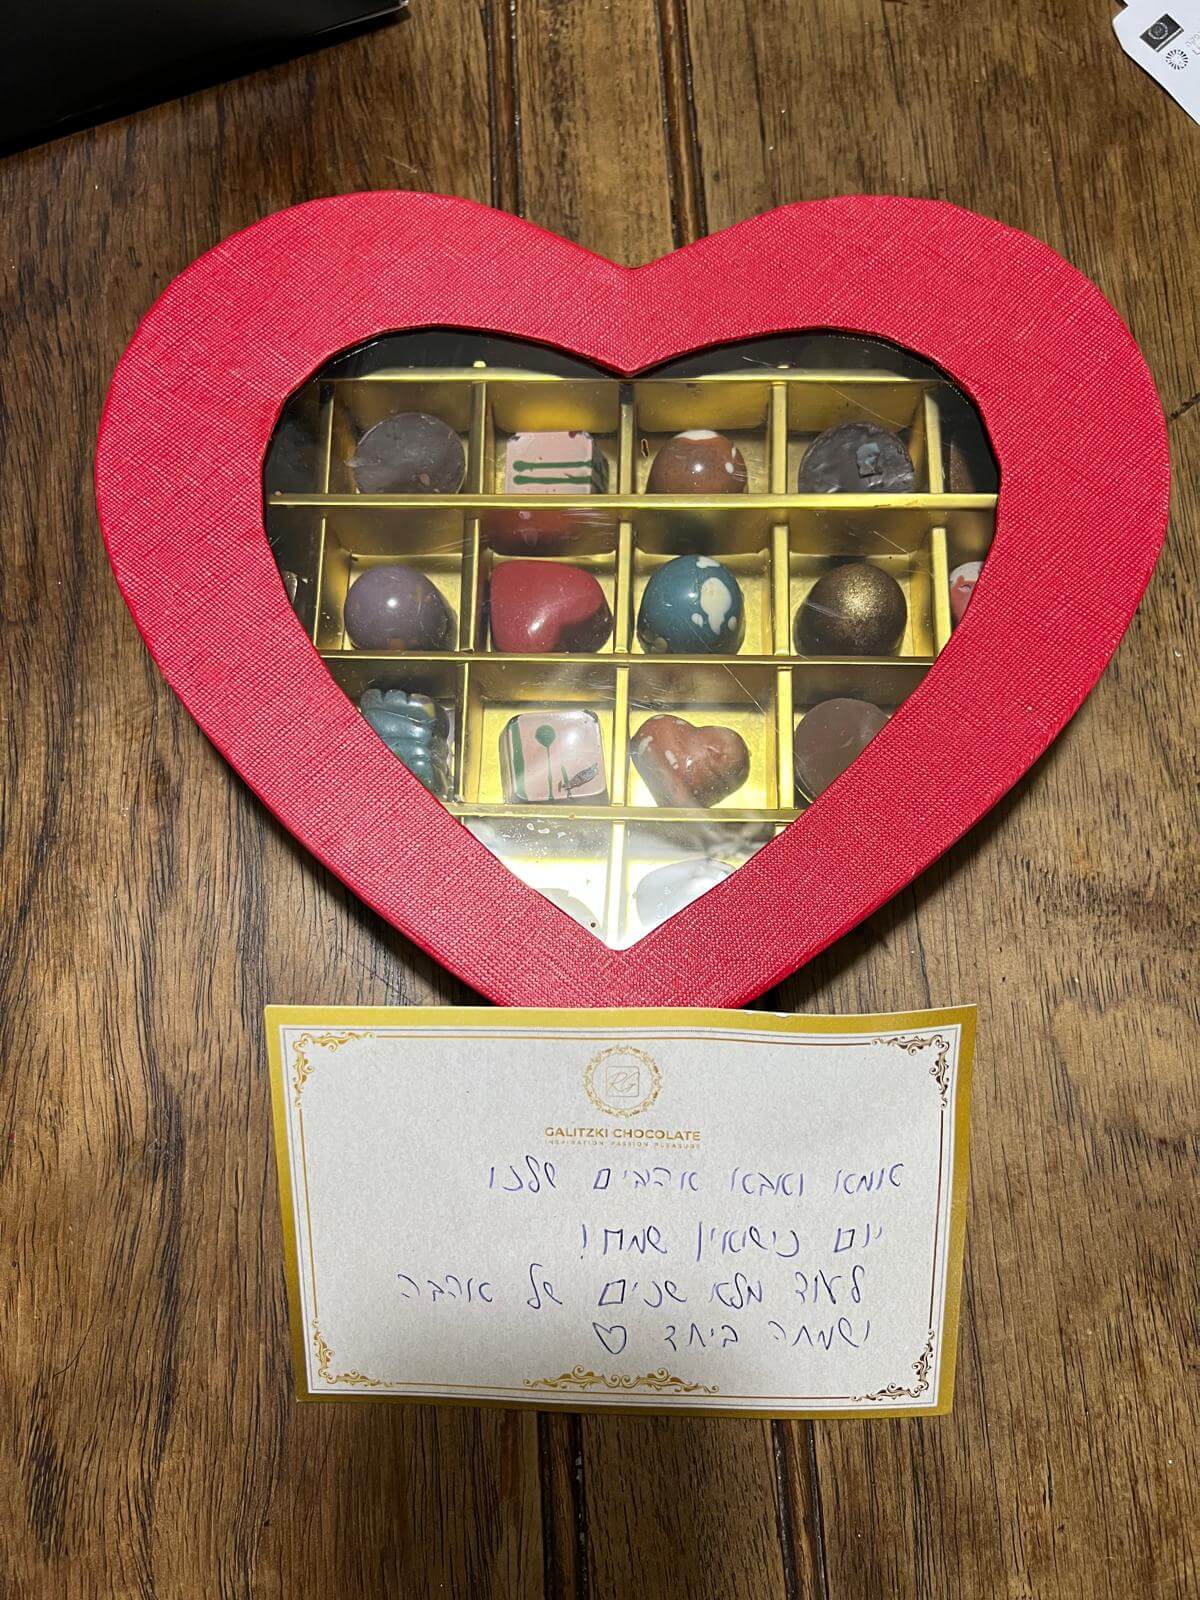 RG
GALITZKI CHOCOLATE
INSPIRATION PASSION PLEASURE
אמא ואבא אהבים שלנו
יום נישואין שמח!
לעוד מלא שנים של אהבה
ושמחה ביחד ♡